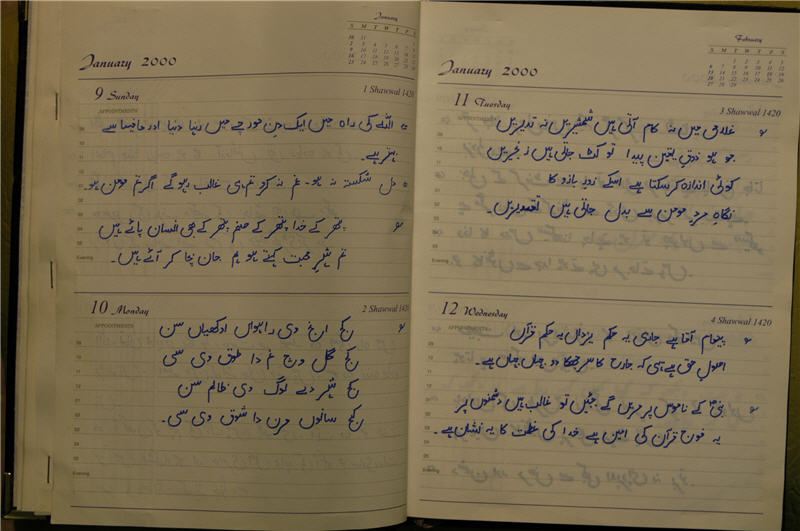 January
S M T W T F S
January 2000
9 Sunday
1 Shawwal 1420
APPOINTMENTS
اللہ کی راہ میں ایک دن مورچے میں رہنا دنیا اور مافیہا سے
بہتر ہے۔
دل شکستہ نہ ہو۔ غم نہ کرو تم ہی غالب ہوگے اگر تم مومن ہو۔
پتھر کے خدا پتھر کے صنم پتھر کے ہی انسان پائے ہیں
تم شہرِ محبت کہتے ہو ہم جان بچا کر آئے ہیں۔
Evening
10 Monday
2 Shawwal 1420
APPOINTMENTS
کج انج وی راہواں اوکھیاں سن
کج گل وچ غم دا طوق وی سی
کج شہر دے لوگ وی ظالم سن
کج سانوں مرن دا شوق وی سی۔
Evening
February
S M T W T F S
1 2 3 4 5
6 7 8 9 10 11 12
13 14 15 16 17 18 19
20 21 22 23 24 25 26
27 28 29
January 2000
11 Tuesday
3 Shawwal 1420
APPOINTMENTS
غلامی میں نہ کام آتی ہیں شمشیریں نہ تدبیریں
جو ہو ذوقِ یقین پیدا تو کٹ جاتی ہیں زنجیریں
کوئی اندازہ کرسکتا ہے اسکے زورِ بازو کا
نگاہِ مردِ مومن سے بدل جاتی ہیں تقدیریں۔
Evening
12 Wednesday
4 Shawwal 1420
APPOINTMENTS
پیغام آتا ہے جاری یہ حکم یزداں یہ حکم قرآں
اصولِ حق ہے یہی کہ جارح کا سر جھکا دو جہاں جہاں ہے۔
نبیؐ کے ناموس پر مریں گے جئیں تو غالب ہیں دشمنوں پر
یہ فوج قرآن کی امین ہے خدا کی عظمت کا یہ نشان ہے۔
Evening